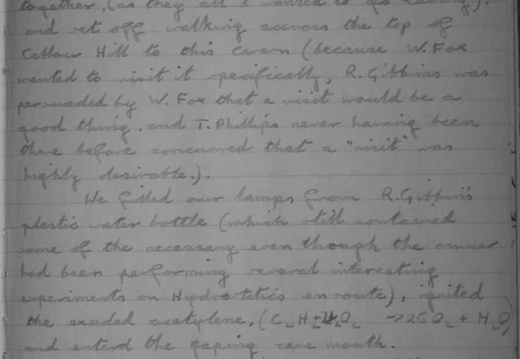 together, (as they all wanted to go caving),
and set off walking across the top of
Callow Hill to this cavern (because W. Fox
wanted to visit it specifically, R. Gibbins was
persuaded by W. Fox that a visit would be a
good thing, and T. Phillips never having been
there before concurred that a "visit" was
highly desirable.).
We filled our lamps from R. Gibbins
plastic water bottle (which still contained
some of the necessary even though the owner
had been performing several interesting
experiments on Hydrostatics en route), ignited
the exuded acetylene, (C₂H₂ + 2½O₂ → 2CO₂ + H₂O)
and enterd the gaping cave mouth.